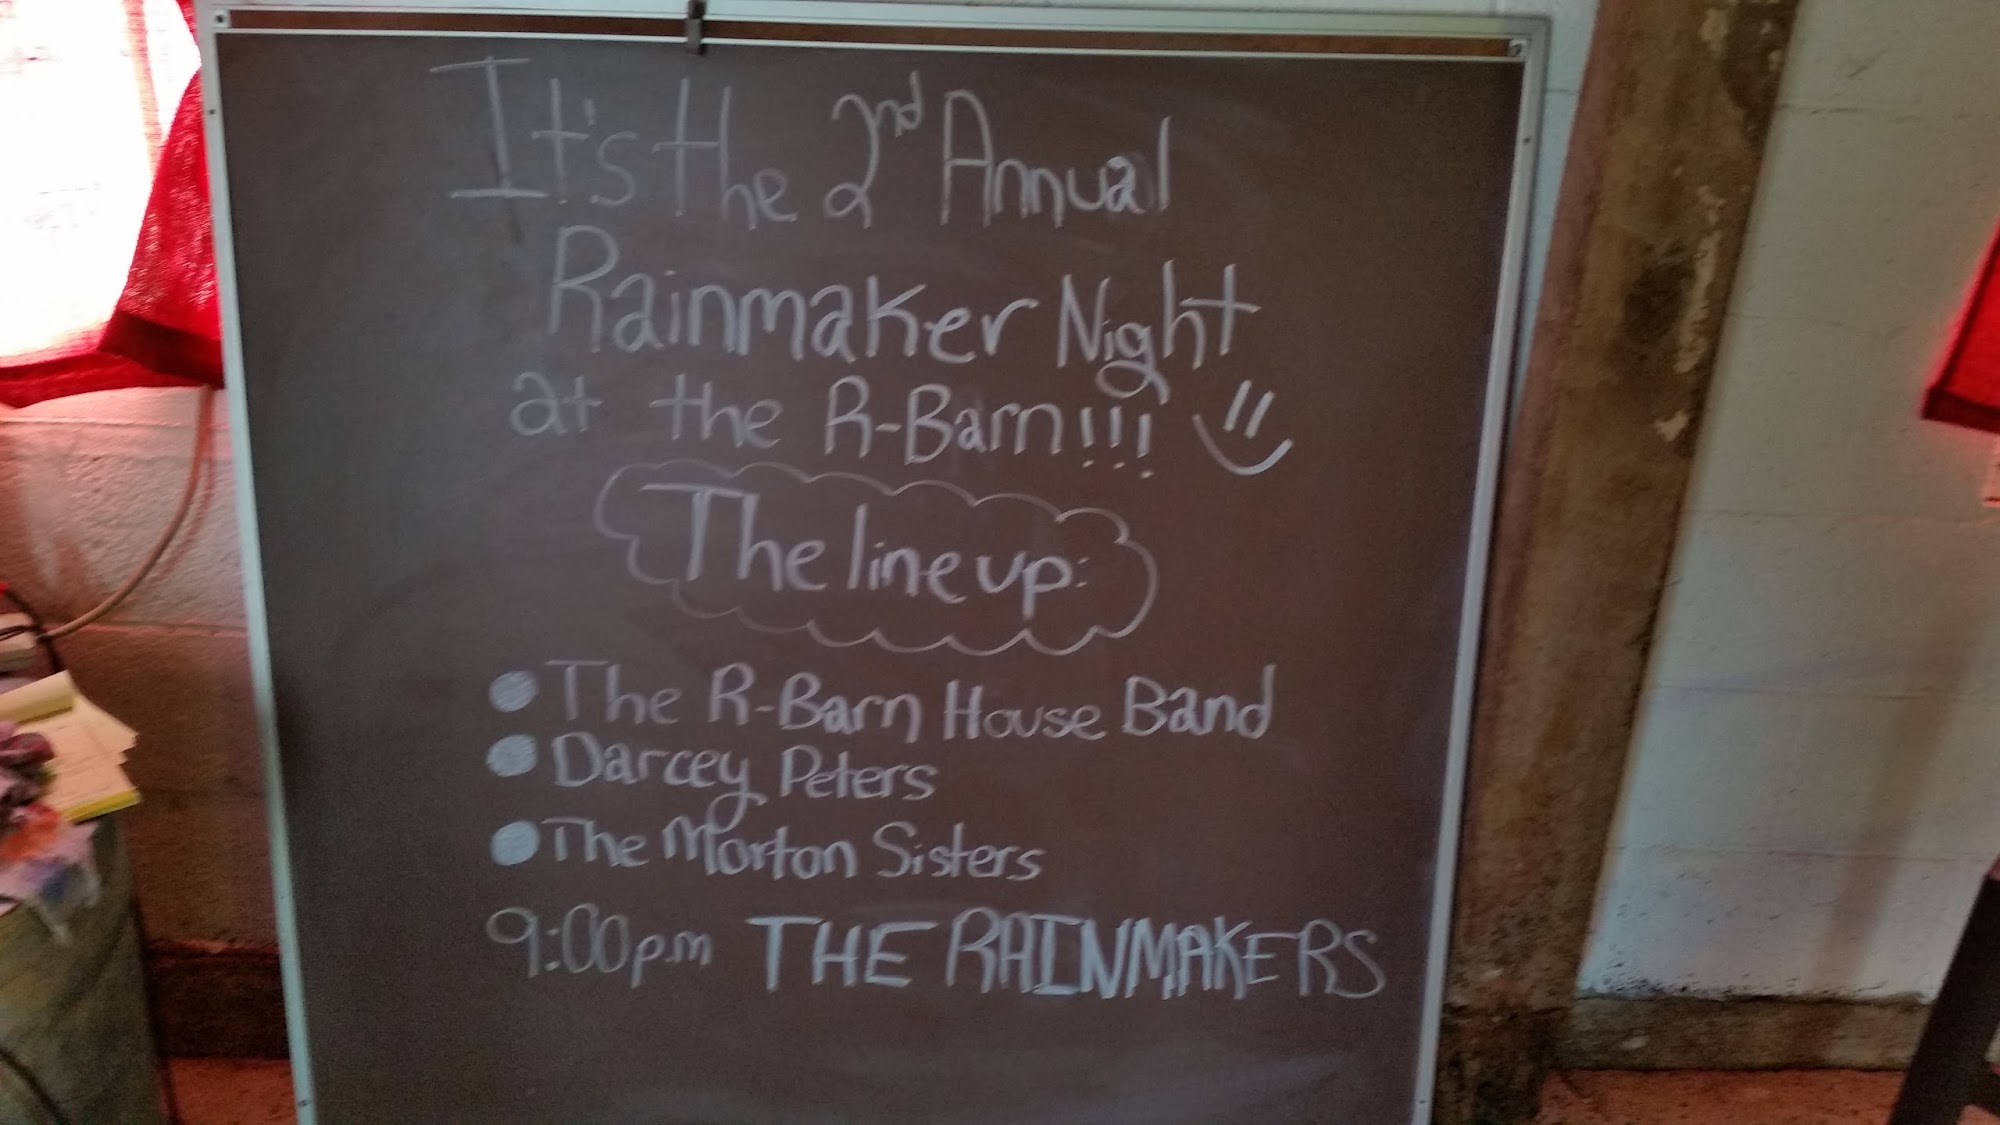 It's the 2nd Annual
Rainmaker Night
at the R-Barn!!!
The line up:
The R-Barn House Band
Darcey Peters
The Morton Sisters
9:00p.m THE RAINMAKERS